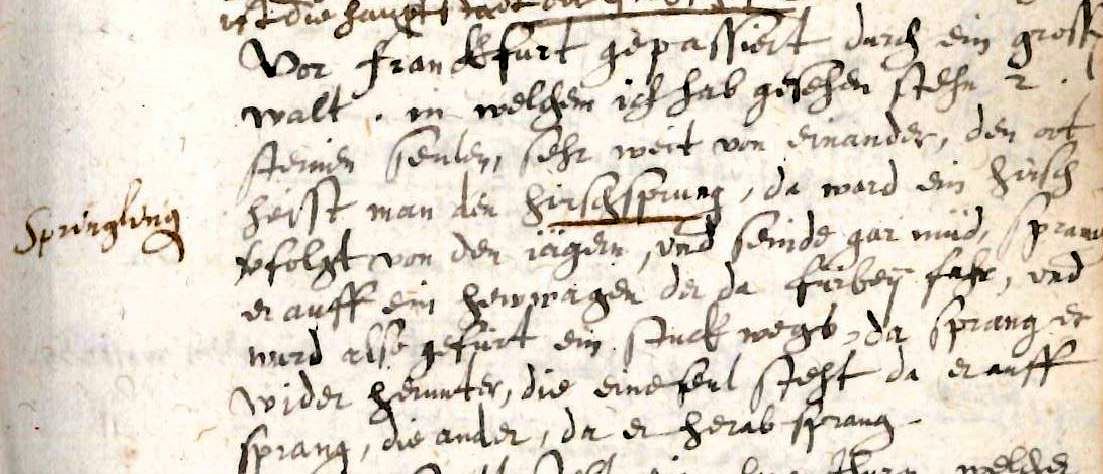 ist die haupt
Vor franckfurt gepassiert durch ein gross
walt. in welchem ich hab gesehen stehn 2.
steinen seulen, sehr weit von einander, den ort
heisst man den hirschsprung, da ward ein hirsch
Springhing
vfolgt von den jägern, vnd seinde gar müd, sprang
er auff ein hewwagen der da fürbeÿ fahr, vnd
ward also gefürt ein stuck wegs, da sprang er
wider herunter, die eine seul steht da er auff
sprang, die ander, da er herab sprang